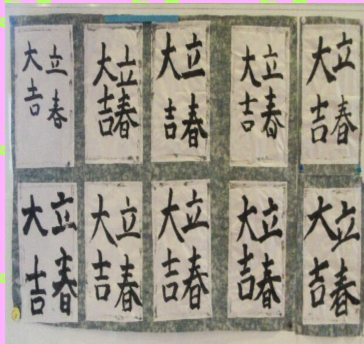 立春
大吉
立春
大吉
立春
大吉
立春
大吉
立春
大吉
立春
大吉
立春
大吉
立春
大吉
立春
大吉
立春
大吉